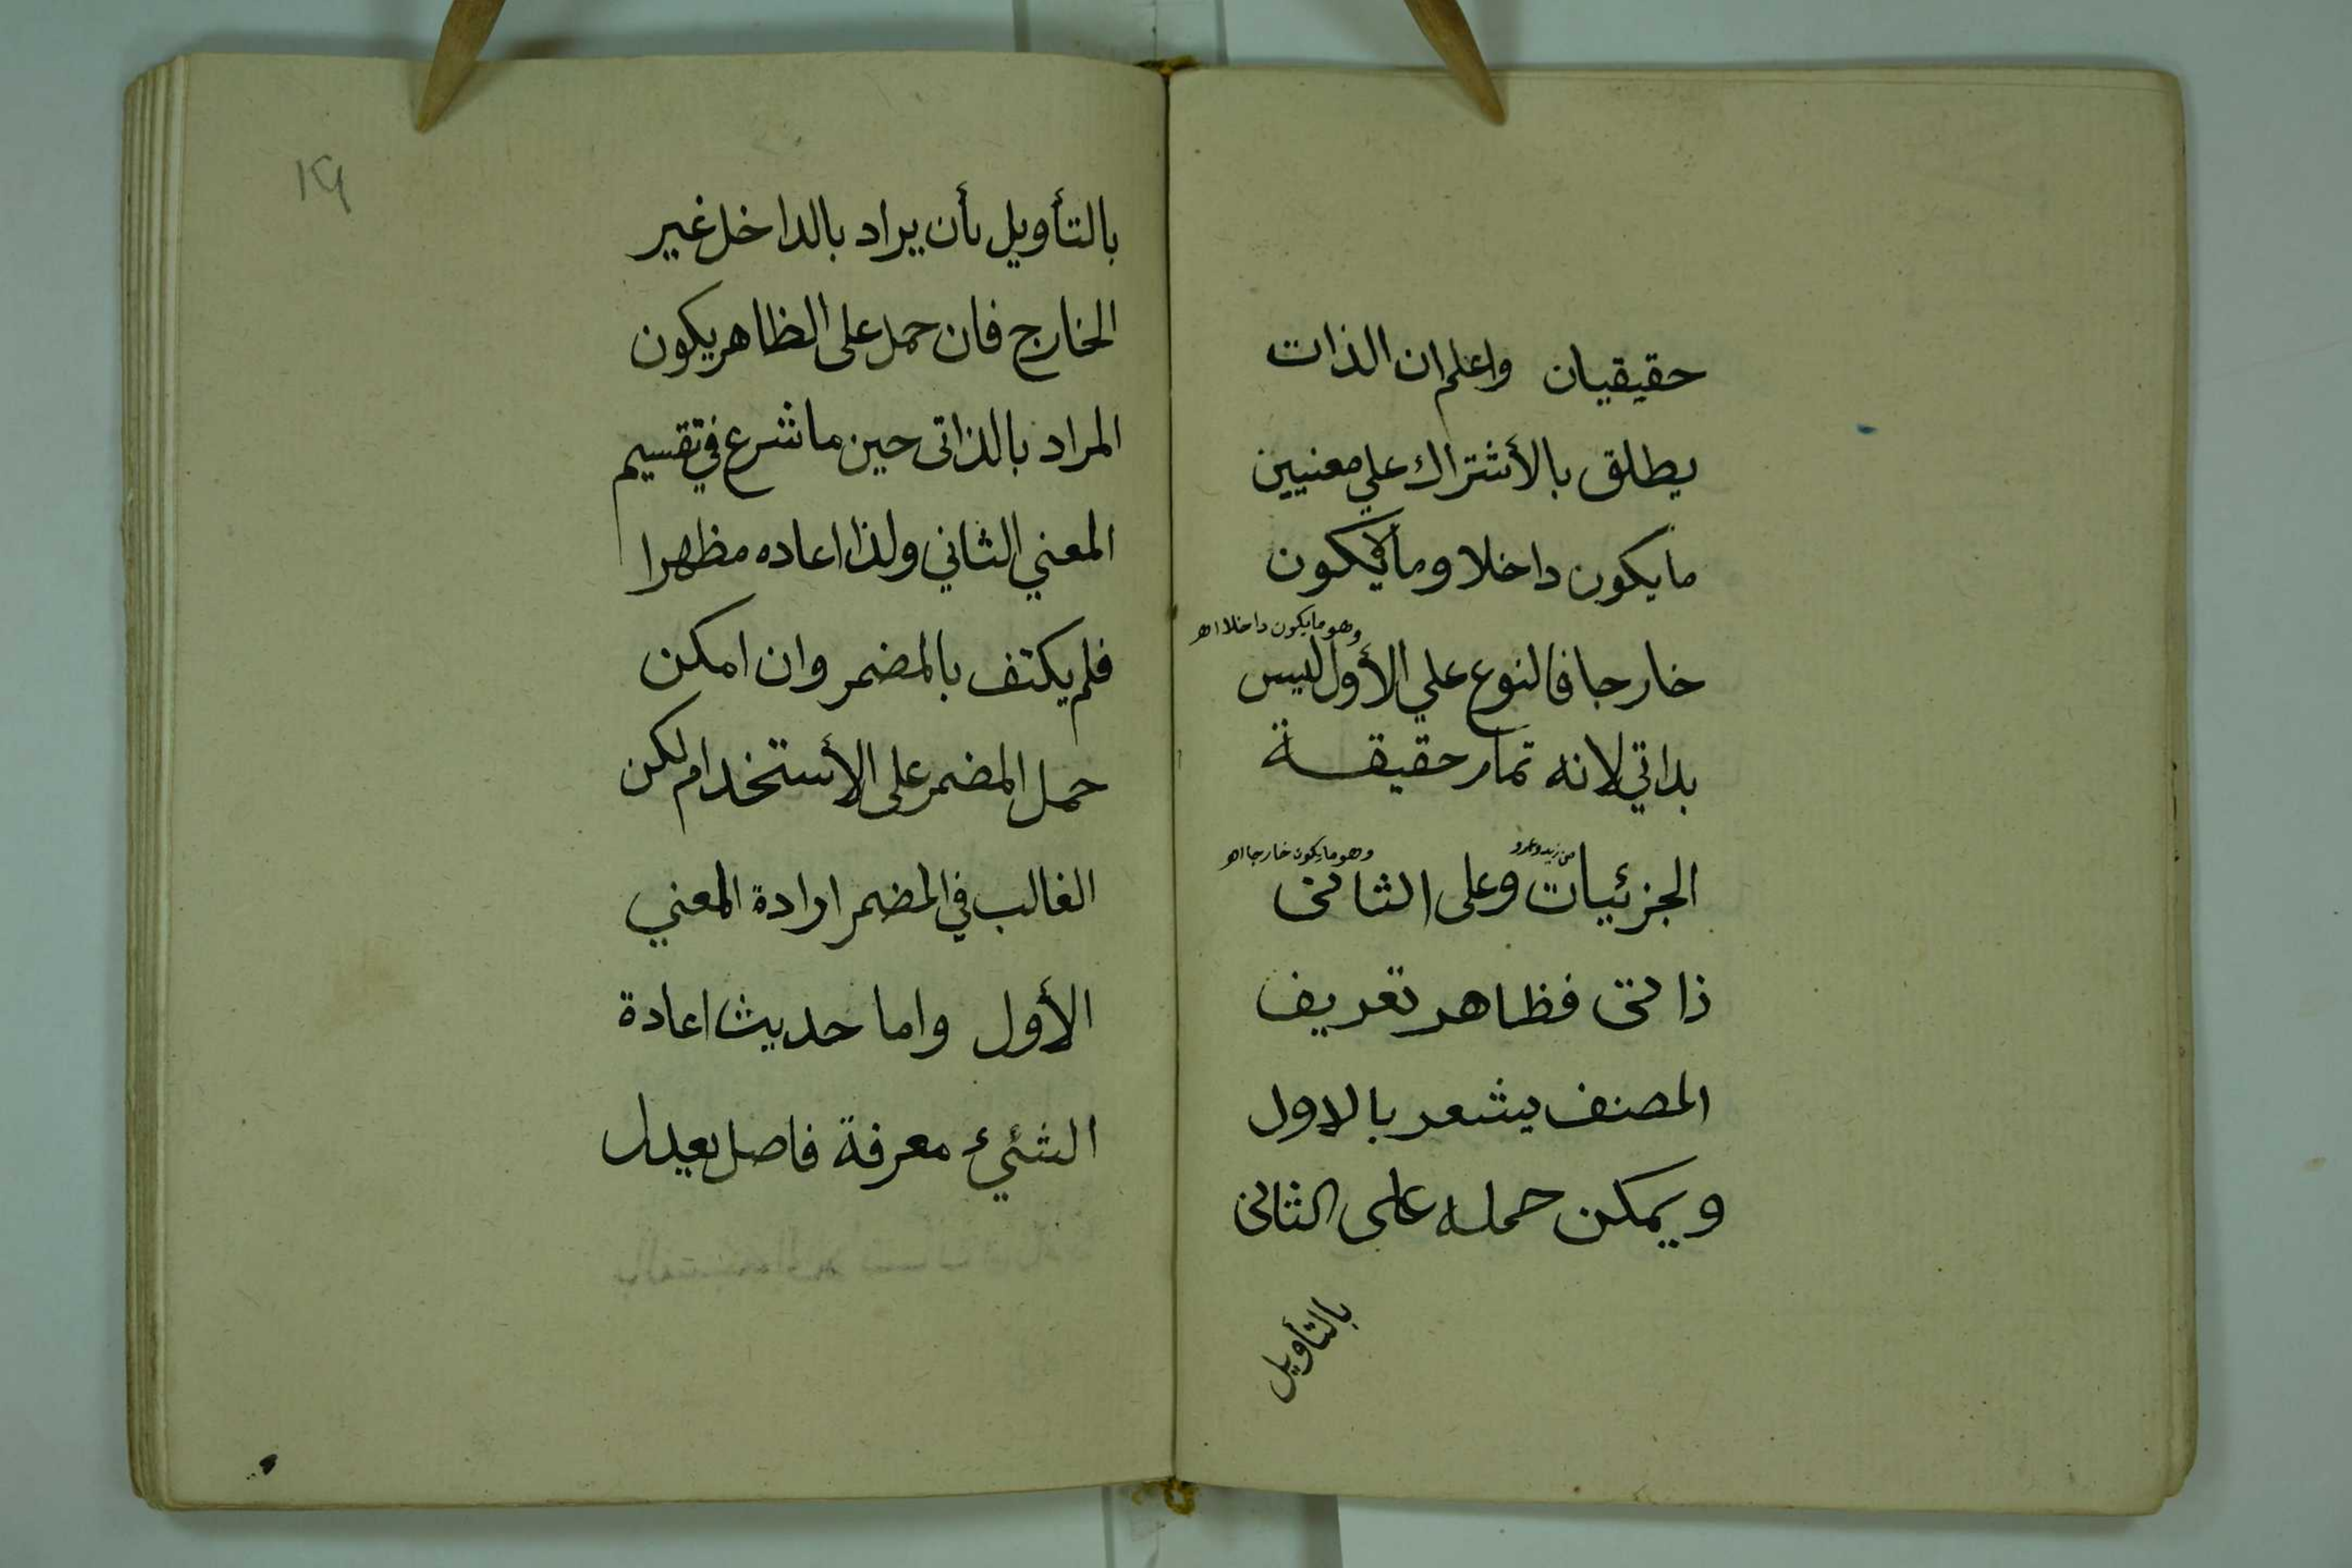 حقيقيان واعلم ان الذات
يطلق بالأشتراك علي معنيين
مايكون داخلا وما لايكون
وهو مايكون داخلا اهـ
خارجا فالنوع علي الأول ليس
بداتي لانه تمام حقيقة
من زيد وعمرو
وهو مايكون خارجا اهـ
الجزئيات وعلى الثاني
ذاتى فظاهر تعريف
المصنف يشعر بالاول
ويمكن حمله على الثانى
بالتأويل
١٩
بالتأويل بأن يراد بالداخل غير
الخارج فان حمل على الظاهر يكون
المراد بالذاتى حين ما شرع في تقسيم
المعني الثاني ولذا اعاده مظهرا
فلم يكتف بالمضمر وان امكن
حمل المضمر على الأستخدام لكن
الغالب في المضمر ارادة المعني
الأول واما حديث اعادة
الشئيء معرفة فاصل يعدل